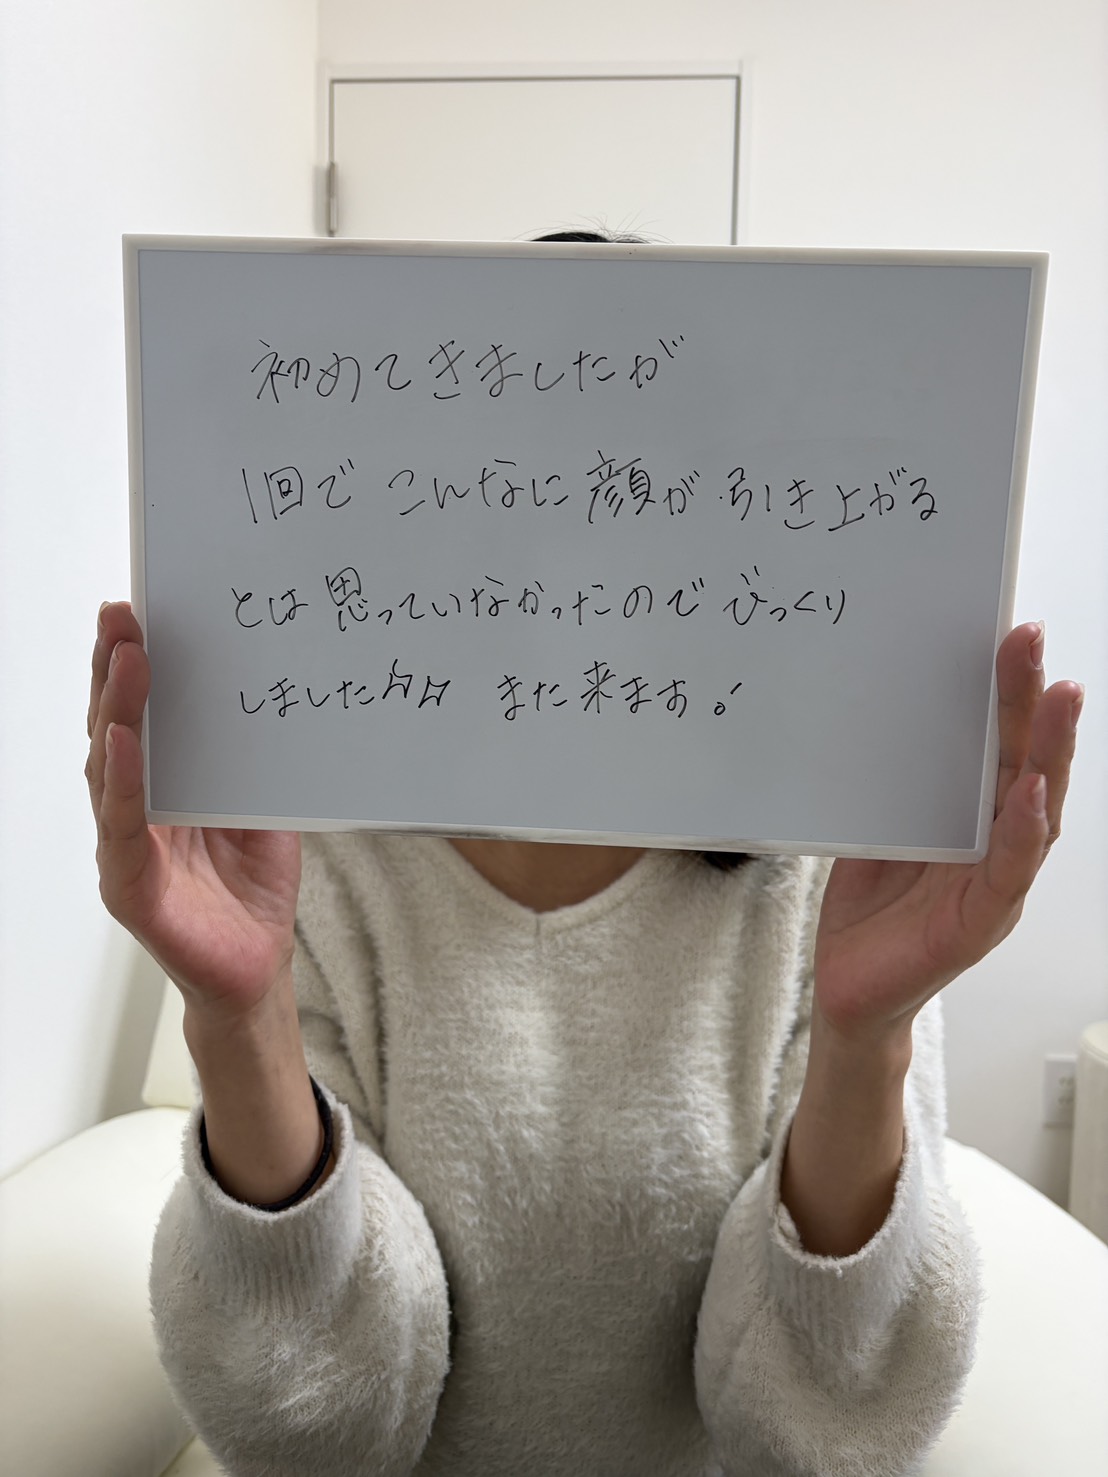 初めてきましたが
1回でこんなに顔が引き上がる
とは思っていなかったのでびっくり
しました☆☆ また来ます!